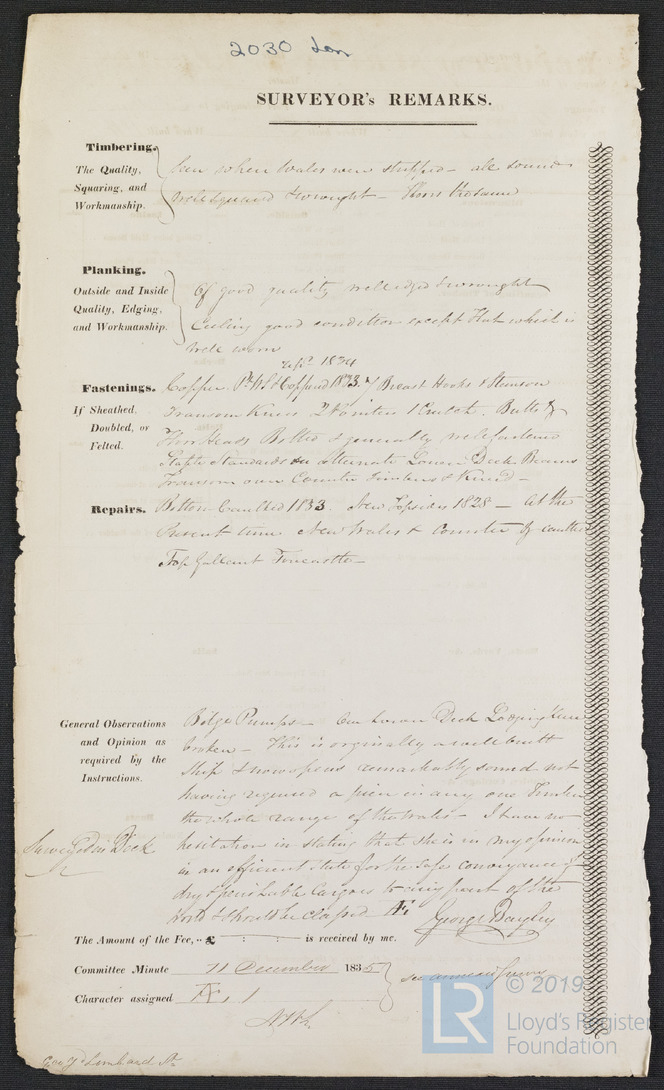 2030 Lon
SURVEYOR's REMARKS.
Timbering.
The Quality,
Squaring, and
Workmanship.
Seen when Wales were stripped - all sound
Well squared & wrought - Floors the same
Planking.
Outside and Inside
Quality, Edging,
and Workmanship.
Of good quality well edged & wrought
Ceiling good condition except Flat which is
well worn
1834
Fastenings.
If Sheathed,
Doubled, or
Felted.
Copper Coppered 1833 Breast Hooks &
Transom Knees 2 Pointers 1 Crutch. Butts &
Floor Heads Bolted & generally well fastened
Staple Standards on alternate Lower Deck Beams
Transom over Counter Timbers & Kneed -
Repairs.
Bottom Caulked 1833. New Topsides 1828 - At the
Present time New Wales & Counter &
Top Gallant Forecastle -
General Observations
and Opinion as
required by the
Instructions.
Bilge Pumps - One Lower Deck Lodging Knee
broken - This is originally a well built
Ship & now opens remarkably sound not
having required a piece in any one Timber
the whole range of the Wales - I have no
hesitation in stating that she is in my opinion
in an efficient state for the safe conveyance of
dry & perishable Cargoes to any part of the
World & should be classed Æ1
George Bayley
Surveyed in Dock
The Amount of the Fee, - £ : : - is received by me.
Committee Minute 11 December 1835
Character assigned Æ 1
see annexed
© 2019
LR
Lloyd's Register
Foundation
Lombard St